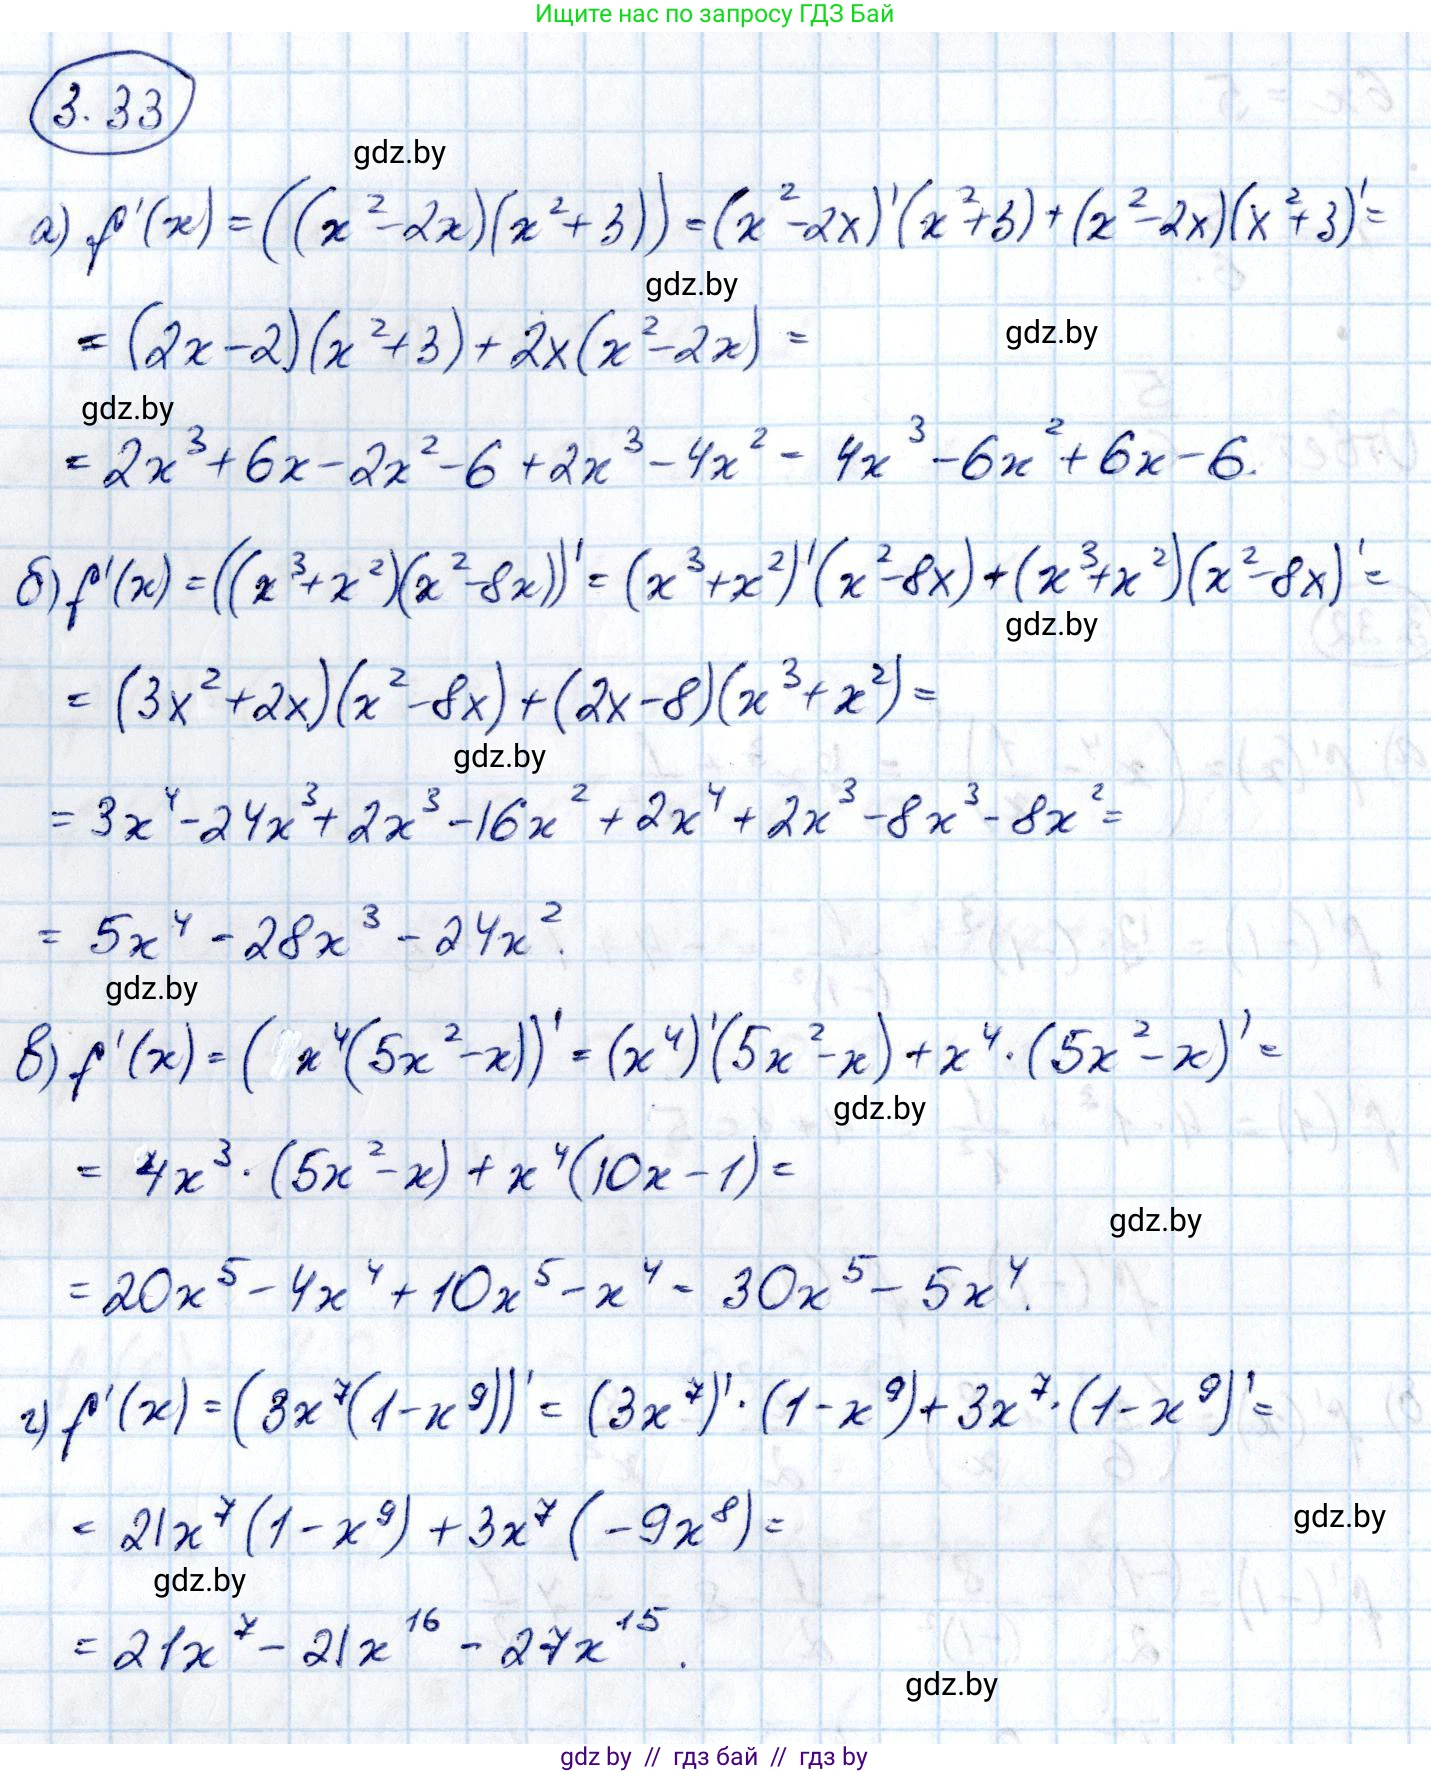 Ищите нас по запросу ГДЗ Бай
3.33
gdz.by
а) f'(x) = ((x²-2x)(x²+3)) = (x²-2x)'(x²+3) + (x²-2x)(x²+3)' =
gdz.by
= (2x-2)(x²+3) + 2x(x²-2x) =
gdz.by
gdz.by
= 2x³+6x-2x²-6+2x³-4x² = 4x³-6x²+6x-6.
б) f'(x) = ((x³+x²)(x²-8x))' = (x³+x²)'(x²-8x) + (x³+x²)(x²-8x)' =
gdz.by
= (3x²+2x)(x²-8x) + (2x-8)(x³+x²) =
gdz.by
= 3x⁴-24x³+2x³-16x²+2x⁴+2x³-8x³-8x² =
= 5x⁴-28x³-24x².
gdz.by
в) f'(x) = (x⁴(5x²-x))' = (x⁴)'(5x²-x) + x⁴·(5x²-x)' =
gdz.by
= 4x³·(5x²-x) + x⁴(10x-1) =
gdz.by
= 20x⁵-4x⁴+10x⁵-x⁴ = 30x⁵-5x⁴.
г) f'(x) = (3x⁷(1-x⁹))' = (3x⁷)'·(1-x⁹) + 3x⁷·(1-x⁹)' =
= 21x⁷(1-x⁹) + 3x⁷(-9x⁸) =
gdz.by
gdz.by
= 21x⁷-21x¹⁶-27x¹⁵.
gdz.by
gdz by // гдз бай // гдз by